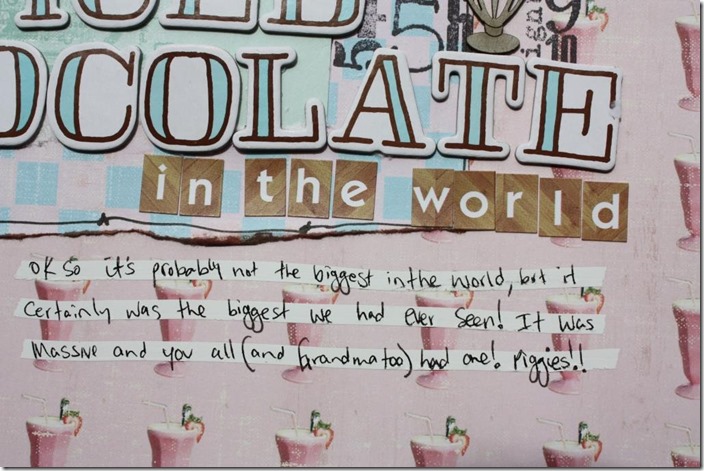 ICED
CHOCOLATE
in the world
OK So it's probably not the biggest in the world, but it
Certainly was the biggest we had ever seen! It was
Massive and you all (and Grandma too) had one! piggies!!